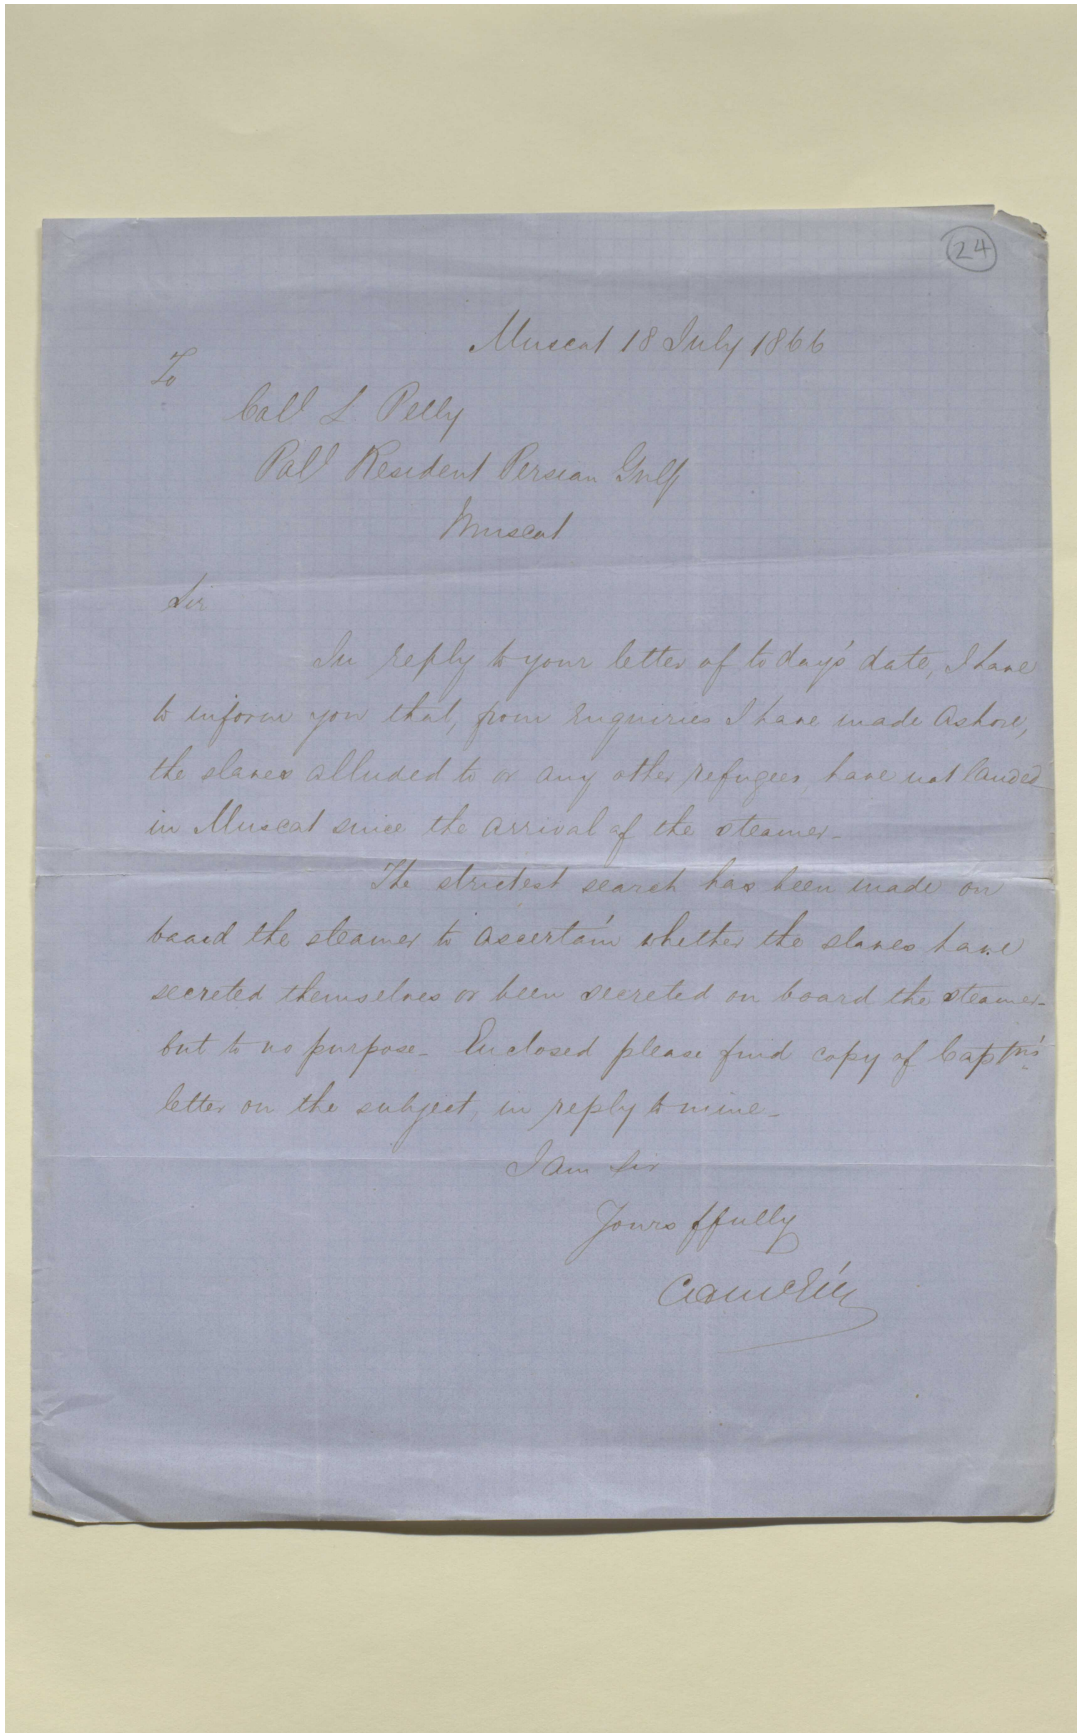 24
Muscat 18 July 1866
To
Coll L. Pelly
Poll Resident Persian Gulf
Muscat
Sir
In reply to your letter of to day's date, I have
to inform you that, from enquiries I have made ashore,
the slaves alluded to or any other refugees, have not landed
in Muscat since the arrival of the steamer_
The strictest search has been made on
board the steamer to ascertain whether the slaves have
secreted themselves or been secreted on board the steamer_
but to no purpose_ Enclosed please find copy of Captn's
letter on the subject, in reply to mine_
I am Sir
Yours ffully